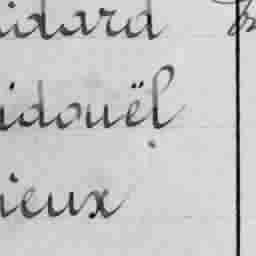 idard
idouël
ieux